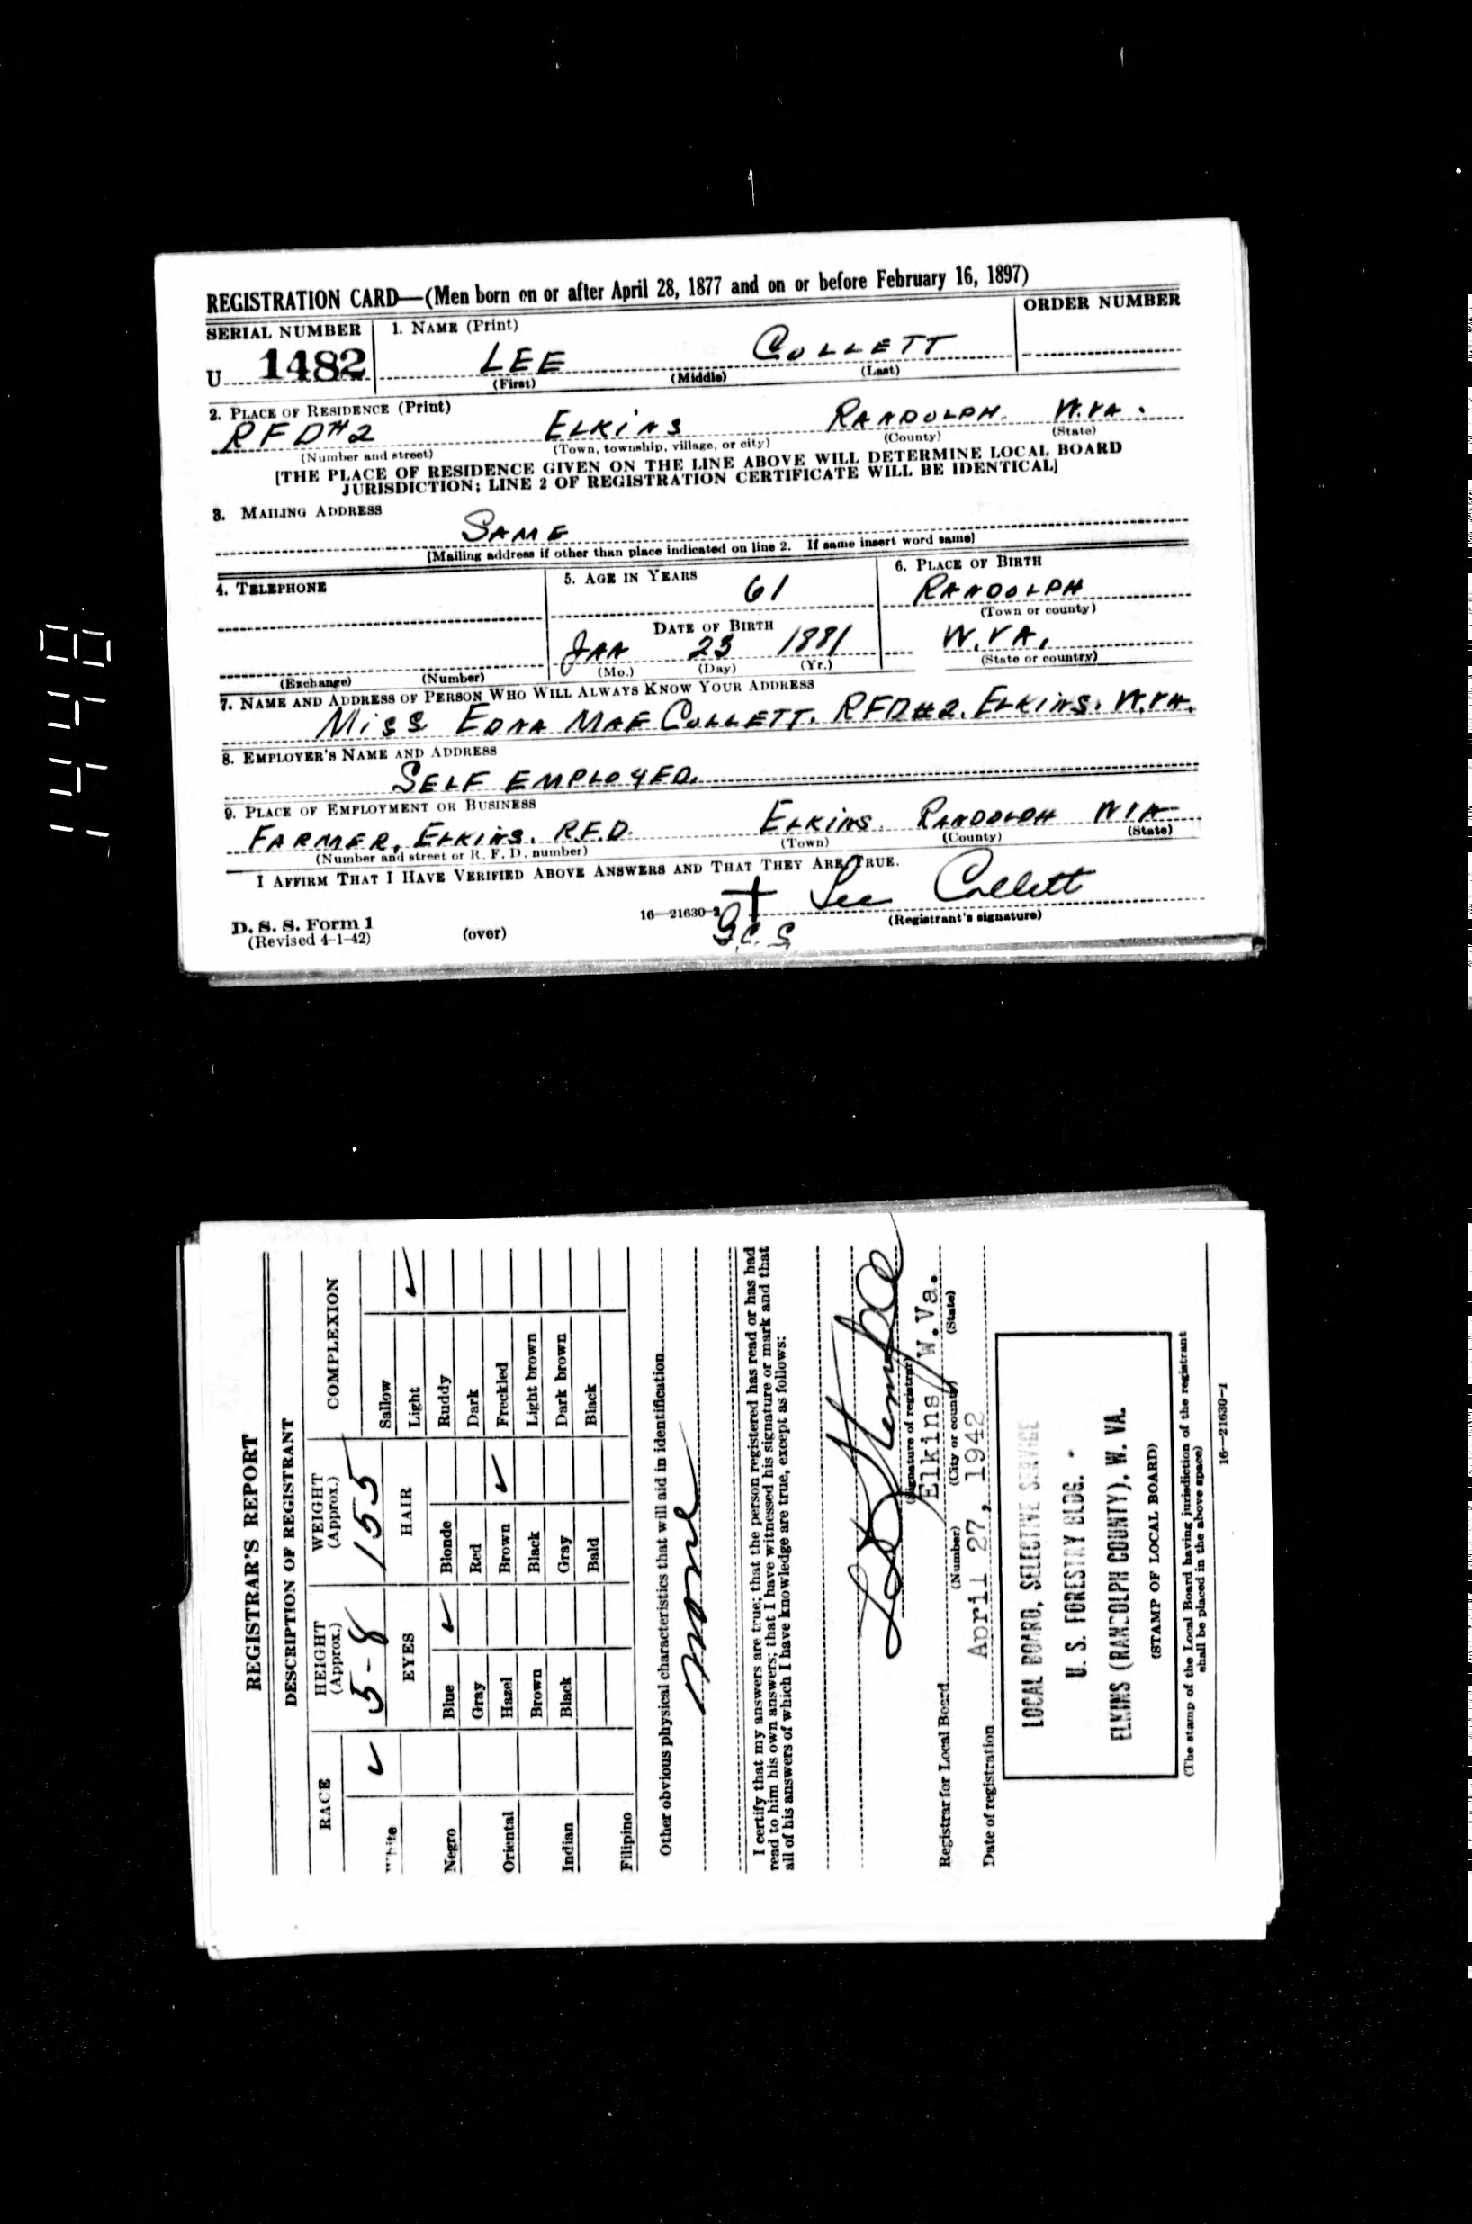 REGISTRATION CARD—(Men born on or after April 28, 1877 and on or before February 16, 1897)
SERIAL NUMBER 1. NAME (Print) ORDER NUMBER
U 1482 LEE COLLETT
(First) (Middle) (Last)
2. PLACE OF RESIDENCE (Print)
RFD#2 ELKINS RANDOLPH W.VA.
(Number and street) (Town, township, village, or city) (County) (State)
[THE PLACE OF RESIDENCE GIVEN ON THE LINE ABOVE WILL DETERMINE LOCAL BOARD
JURISDICTION; LINE 2 OF REGISTRATION CERTIFICATE WILL BE IDENTICAL]
3. MAILING ADDRESS
SAME
[Mailing address if other than place indicated on line 2. If same insert word same]
4. TELEPHONE 5. AGE IN YEARS 6. PLACE OF BIRTH
61 RANDOLPH
(Town or county)
DATE OF BIRTH
JAN 23 1881 W.VA.
(Exchange) (Number) (Mo.) (Day) (Yr.) (State or country)
7. NAME AND ADDRESS OF PERSON WHO WILL ALWAYS KNOW YOUR ADDRESS
MISS EDNA MAE COLLETT. RFD#2. ELKINS. W.VA.
8. EMPLOYER'S NAME AND ADDRESS
SELF EMPLOYED.
9. PLACE OF EMPLOYMENT OR BUSINESS
FARMER. ELKINS. R.F.D. ELKINS. RANDOLPH W VA
(Number and street or R. F. D. number) (Town) (County) (State)
I AFFIRM THAT I HAVE VERIFIED ABOVE ANSWERS AND THAT THEY ARE TRUE.
Lee Collett
D. S. S. Form 1 16—21630-1 (Registrant's signature)
(Revised 4-1-42) (over) G.C.S.
14440
REGISTRAR'S REPORT
DESCRIPTION OF REGISTRANT
RACE HEIGHT (Approx.) WEIGHT (Approx.) COMPLEXION
5-8 155
White ✓ EYES HAIR Sallow
Light ✓
Negro Blue ✓ Blonde Ruddy
Gray Red Dark
Oriental Hazel Brown ✓ Freckled
Brown Black Light brown
Indian Black Gray Dark brown
Bald Black
Filipino
Other obvious physical characteristics that will aid in identification
none
I certify that my answers are true; that the person registered has read or has had
read to him his own answers; that I have witnessed his signature or mark and that
all of his answers of which I have knowledge are true, except as follows:
(Signature of registrar)
Registrar for Local Board Elkins W.Va.
(Number) (City or county) (State)
Date of registration April 27, 1942
LOCAL BOARD, SELECTIVE SERVICE
U. S. FORESTRY BLDG.
ELKINS (RANDOLPH COUNTY), W. VA.
(STAMP OF LOCAL BOARD)
(The stamp of the Local Board having jurisdiction of the registrant
shall be placed in the above space)
16—21630-1